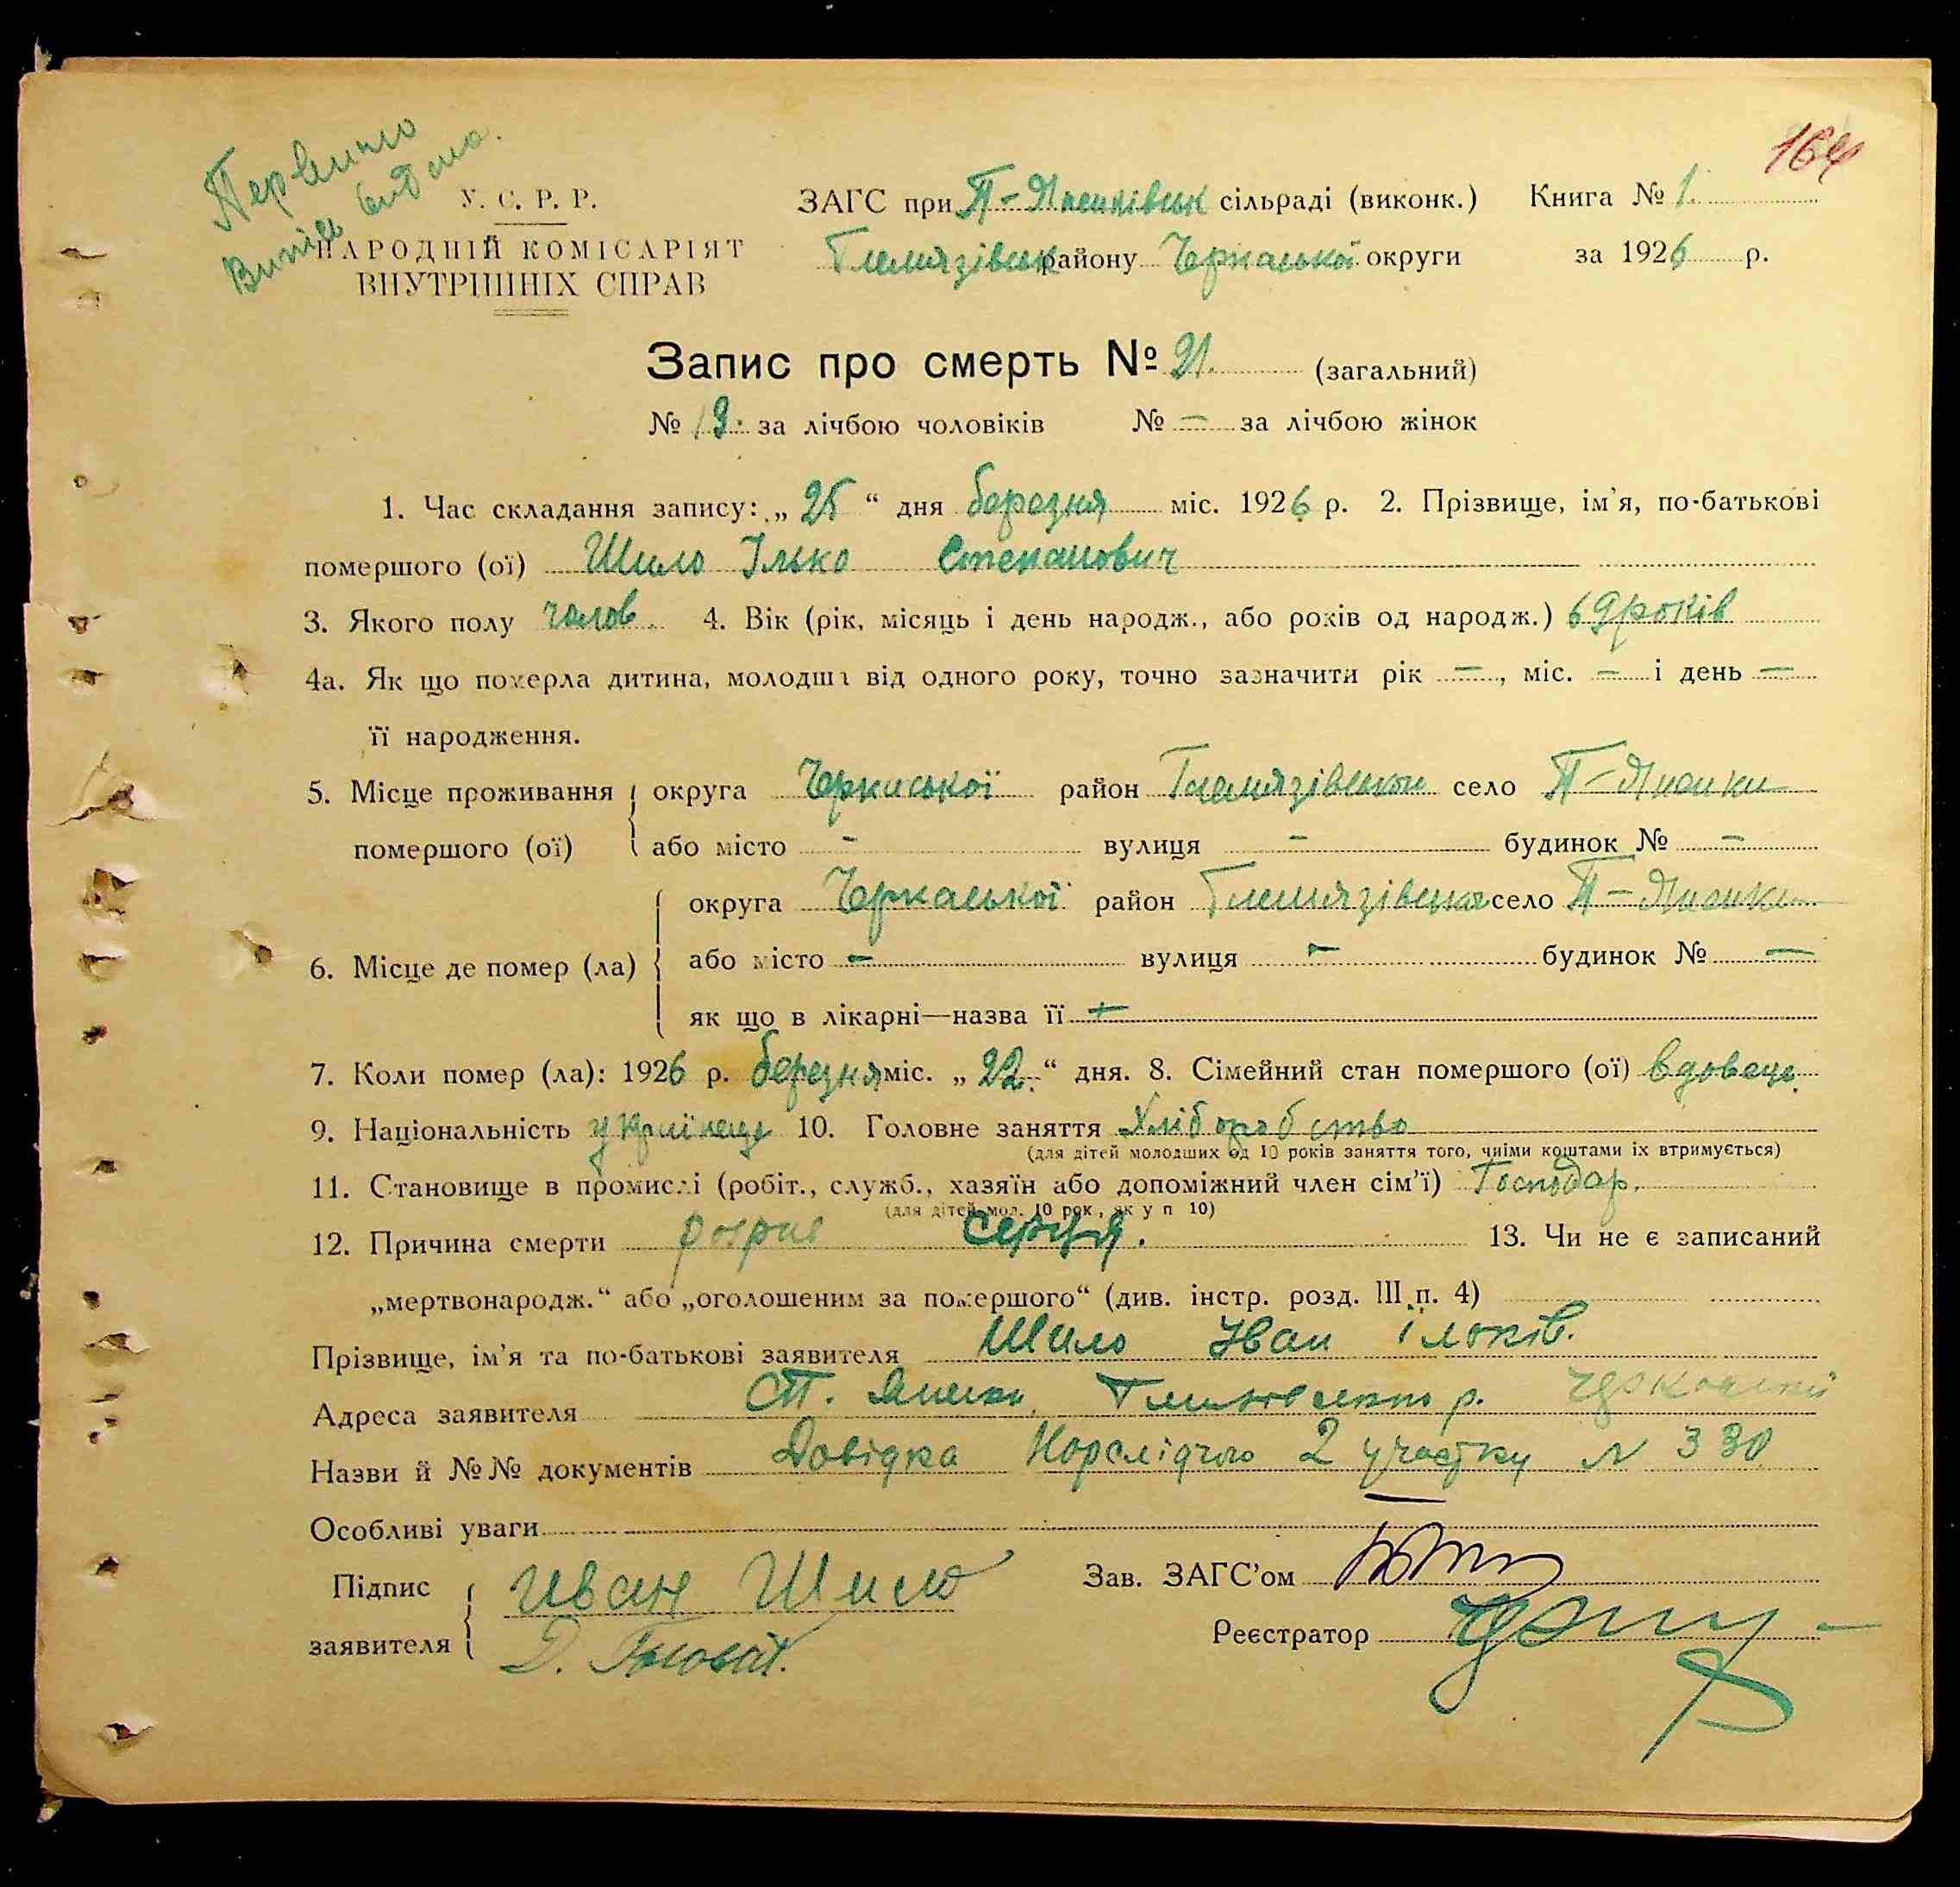 164
У. С. Р. Р.
НАРОДНІЙ КОМІСАРІЯТ
ВНУТРІШНІХ СПРАВ
ЗАГС при сільраді (виконк.) Книга № 1.
району Черкаської округи за 1926 р.
Запис про смерть № 21. (загальний)
№ 13. за лічбою чоловіків № – за лічбою жінок
1. Час складання запису: „ 25 “ дня березня міс. 1926 р. 2. Прізвище, ім'я, по-батькові
помершого (ої) Шило Ілько Степанович
3. Якого полу чолов. 4. Вік (рік, місяць і день народж., або років од народж.) 69 років
4а. Як що померла дитина, молодша від одного року, точно зазначити рік –, міс. – і день –
її народження.
5. Місце проживання помершого (ої) округа Черкаської район Гельмязівськ село П-Яшники
або місто – вулиця – будинок № –
6. Місце де помер (ла) округа Черкаської район село
або місто – вулиця – будинок № –
як що в лікарні—назва її –
7. Коли помер (ла): 1926 р. березня міс. „ 22. “ дня. 8. Сімейний стан помершого (ої) вдовець.
9. Національність українець 10. Головне заняття Хліборобство
(для дітей молодших од 10 років заняття того, чиїми коштами їх втримується)
11. Становище в промислі (робіт., служб., хазяїн або допоміжний член сім'ї) Господар.
(для дітей мол. 10 рок, як у п 10)
12. Причина смерти розрив серця. 13. Чи не є записаний
„мертвонародж.“ або „оголошеним за помершого“ (див. інстр. розд. III п. 4)
Прізвище, ім'я та по-батькові заявителя Шило Іван Ільків.
Адреса заявителя
Назви й №№ документів Довідка Нарслідчого 2 участку N 330
Особливі уваги
Підпис заявителя Иван Шило
Зав. ЗАГС'ом
Реєстратор